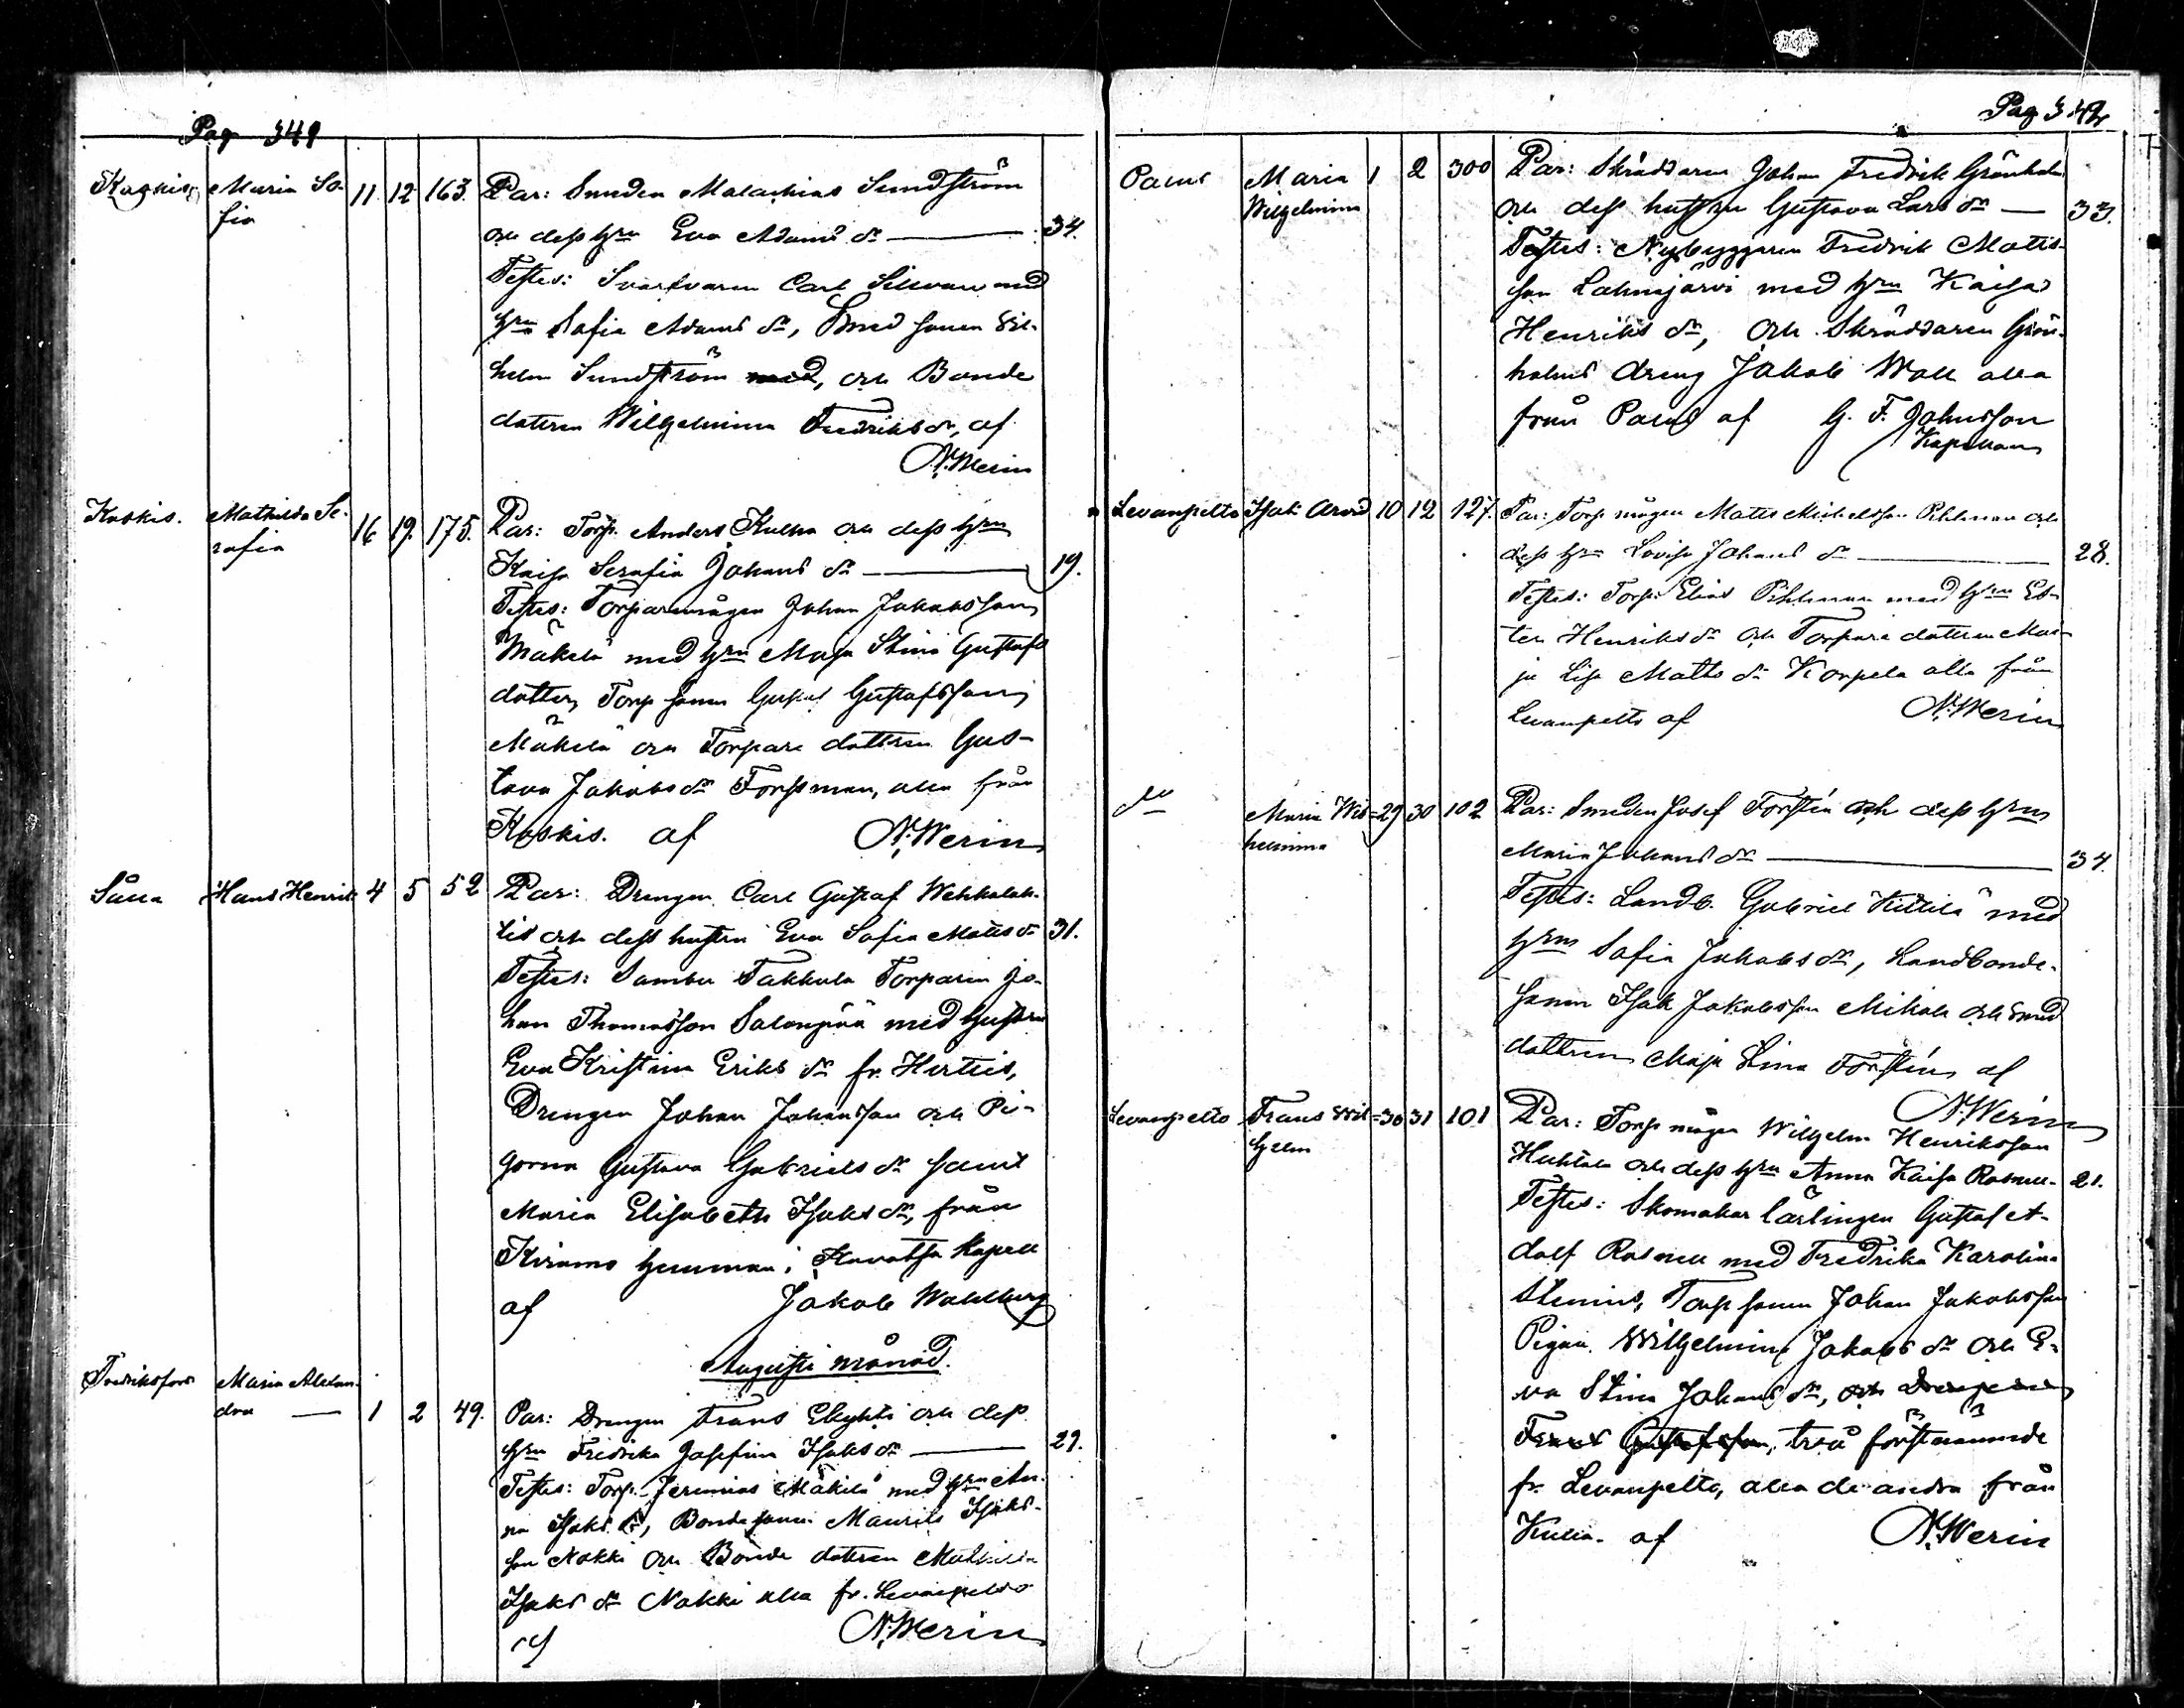 Pag 341
Koskis Maria So- 11. 12 163. Par: Smeden Malachias Sundström
fia och dess hru Eva Adams dr — 34.
Testes: Svarfvaren Carl med
hru Sofia Adams dr, Smed sonen Wil-
helm Sundström med, och Bonde
dottren Wilhelmina Fredriksdr, af
N. Merin
Koskis. Mathilda Se- 16 19. 175. Par: Torp. Anders Kulma och dess hru
rafia Kaisa Serafia Johans dr — 19.
Testes: Torparemågen Johan Jakobsson
Mäkelä med hru Maja Stina Gustafs
dotter, Torp sonen Gustaf Gustafsson
Mäkelä och Torpare dottren Gus-
tava Jakobs dr Forssman, alla från
Koskis. af N. Merin
Hans Henrik 4 5 52 Par: Drengen Carl Gustaf
och dess hustru Eva Sofia Matts dr 31.
Testes: Takkula Torparen Jo-
han Thomasson Salonpää med hustru
Eva Kristina Eriks dr fr.
Drengen Johan Johansson och Pi-
gorna Gustava Gabriels dr samt
Maria Elisabeth Isaks dr, från
hemman i Kauvatsa Kapell
af Jakob Wahlberg
Augusti månad.
Fredriksfors Maria Alexan-
dra — 1 2 49. Par: Drengen Frans och dess
hru Fredrika Josefina Isaks dr — 29.
Testes: Torp. Jeremias Mäkilä med hru An-
na Isaks dr, Bondesonen Maurits Isaks-
son Nokki och Bonde dottren Mathilda
Isaks dr Nokki alla fr. Levanpelto
af N. Merin
Pag 342
Palus Maria 1 2 300 Par: Skräddaren Johan Fredrik Grönholm
Wilhelmina och dess hustru Gustava Lars dr — 33.
Testes: Nybyggaren Fredrik Matts-
son Lahnajärvi med hru Kaisa
Henriks dr, och Skräddaren Grön-
holms dreng Jakob Wall alla
från Palus af G. F. Johnsson
Kapellan
Levanpelto Isak Arvid 10 12 127. Par: Torp mågen Matts Michelsson Pihlman och
dess hru Lovisa Johans dr — 28.
Testes: Torp. Elias Pihlman med hru Es-
ter Henriksdr och Torpare dottren Ma-
ja Lisa Matts dr Korpela alla från
Levanpelto af N. Merin
do Maria Wil- 29 30 102 Par: Smeden Josef Forstén och dess hru
helmina Maria Johans dr — 34.
Testes: Landb. Gabriel Kittilä med
hru Sofia Jakobs dr, Landbonde-
sonen Isak Jakobsson Mikola och Smed
dottren Maja Stina Forstén af
N. Merin
Levanpelto Frans Wil- 30 31 101 Par: Torp mågen Wilhelm Henriksson
helm Huhtala och dess hru Anna Kaisa Rosnell. 21.
Testes: Skomakar lärlingen Gustaf A-
dolf Rosnell med Fredrika Karolina
Stenius, Torp sonen Johan Jakobsson
Pigan Wilhelmina Jakobs dr och E-
va Stina Johans dr, och Drengen
Frans Gustafsson, två förstnämnde
fr. Levanpelto, alla de andra från
Kulla. af N. Merin